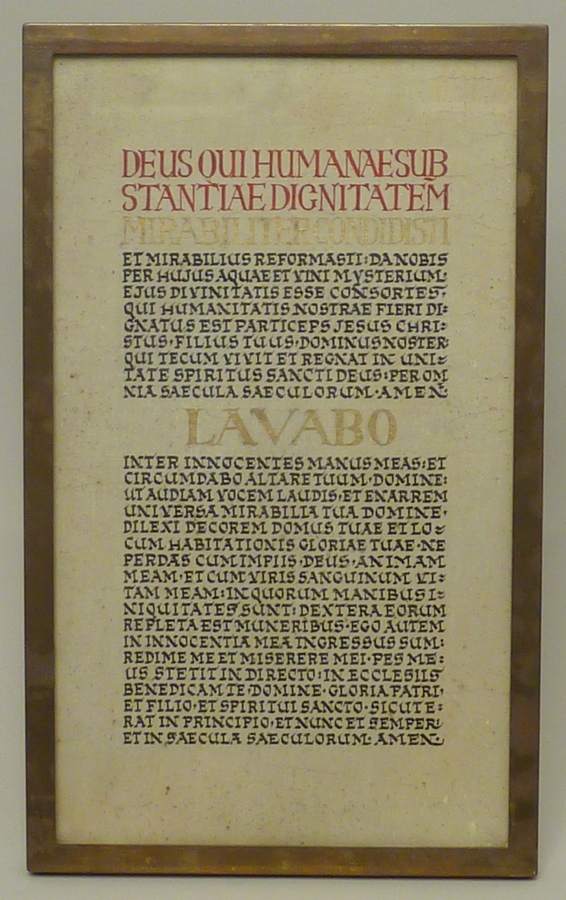 DEUS QUI HUMANAE SUB
STANTIAE DIGNITATEM
MIRABILITER CONDIDISTI
ET MIRABILIUS REFORMASTI: DA NOBIS
PER HUJUS AQUAE ET VINI MYSTERIUM:
EJUS DIVINITATIS ESSE CONSORTES,
QUI HUMANITATIS NOSTRAE FIERI DI:
GNATUS EST PARTICEPS JESUS CHRI:
STUS·FILIUS TUUS·DOMINUS NOSTER:
QUI TECUM VIVIT ET REGNAT IN UNI:
TATE SPIRITUS SANCTI DEUS: PER OM
NIA SAECULA SAECULORUM·AMEN:
LAVABO
INTER INNOCENTES MANUS MEAS: ET
CIRCUMDABO ALTARE TUUM·DOMINE:
UT AUDIAM VOCEM LAUDIS·ET ENARREM
UNIVERSA MIRABILIA TUA DOMINE·
DILEXI DECOREM DOMUS TUAE ET LO:
CUM HABITATIONIS GLORIAE TUAE·NE
PERDAS CUM IMPIIS·DEUS·ANIMAM
MEAM·ET CUM VIRIS SANGUINUM VI:
TAM MEAM: IN QUORUM MANIBUS I:
NIQUITATES SUNT: DEXTERA EORUM
REPLETA EST MUNERIBUS·EGO AUTEM
IN INNOCENTIA MEA INGRESSUS SUM:
REDIME ME ET MISERERE MEI·PES ME:
US STETIT IN DIRECTO: IN ECCLESIIS
BENEDICAM TE·DOMINE·GLORIA PATRI·
ET FILIO·ET SPIRITUI SANCTO·SICUT E:
RAT IN PRINCIPIO·ET NUNC ET SEMPER·
ET IN SAECULA SAECULORUM·AMEN: